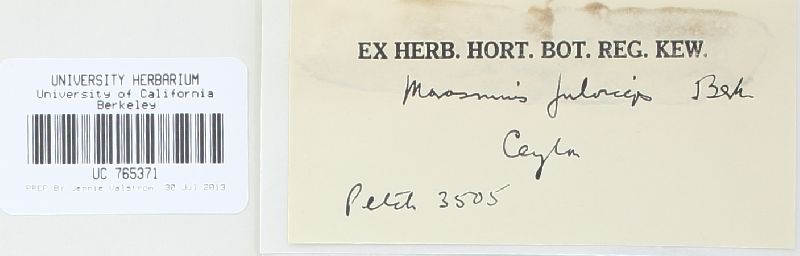 UNIVERSITY HERBARIUM
University of California
Berkeley
UC 765371
PREP By Jennie Valstrom, 30 Jul 2013
EX HERB. HORT. BOT. REG. KEW.
Marasmius fulviceps Berk
Ceylon
Petch 3505